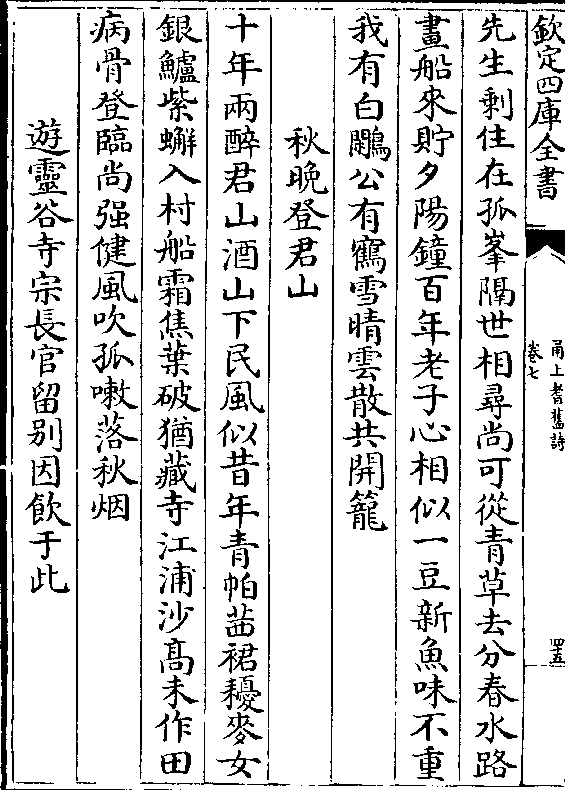 欽定四庫全書
甬上耆舊詩
卷七
四五
先生剩住在孤峯隔世相尋尚可從青草去分春水路
畫船來貯夕陽鐘百年老子心相似一豆新魚味不重
我有白鷴公有鶴雪晴雲散共開籠
秋晚登君山
十年兩醉君山酒山下民風似昔年青帕茜裙耰麥女
銀鱸紫蠏入村船霜焦葉破猶藏寺江浦沙髙未作田
病骨登臨尚强健風吹孤嗽落秋烟
遊靈谷寺宗長官留别因飲于此